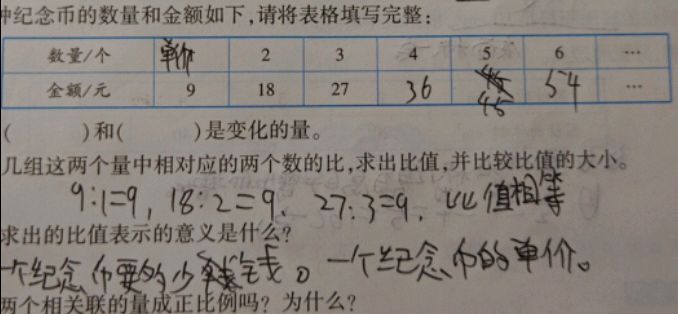 中纪念币的数量和金额如下,请将表格填写完整:
数量/个 单价 2 3 4 5 6 …
金额/元 9 18 27 36 45 54 …
( )和( )是变化的量。
几组这两个量中相对应的两个数的比,求出比值,并比较比值的大小。
9:1=9, 18:2=9. 27:3=9. 比值相等
求出的比值表示的意义是什么?
一个纪念币要的少钱。一个纪念币的单价。
两个相关联的量成正比例吗? 为什么?